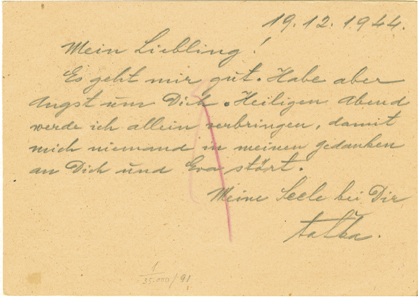 19.12.1944.
Mein Liebling!
Es geht mir gut. Habe aber
Angst um Dich. Heiligen Abend
werde ich allein verbringen, damit
mich niemand in meinen gedanken
an Dich und Eva stört.
Meine Seele bei Dir